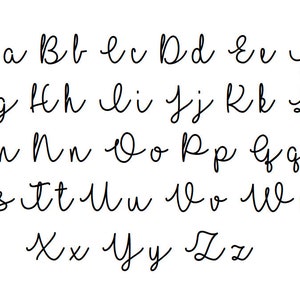 a Bb Cc Dd Ee
g Hh Ii Jj Kk
n Nn Oo Pp Qq
s Tt Uu Vv W
Xx Yy Zz